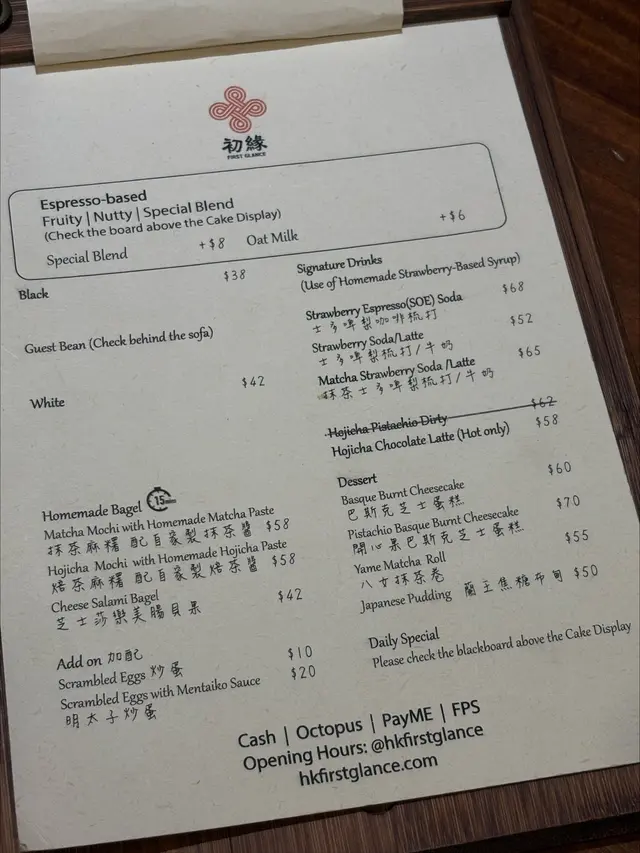 初緣
FIRST GLANCE
Espresso-based
Fruity | Nutty | Special Blend
(Check the board above the Cake Display)
Special Blend +$8 Oat Milk +$6
Black $38
Guest Bean (Check behind the sofa)
White $42
Signature Drinks
(Use of Homemade Strawberry-Based Syrup)
Strawberry Espresso(SOE) Soda $68
士多啤梨咖啡梳打
Strawberry Soda/Latte $52
士多啤梨梳打/牛奶
Matcha Strawberry Soda /Latte $65
抹茶士多啤梨梳打/牛奶
Hojicha Pistachio Dirty $62
Hojicha Chocolate Latte (Hot only) $58
Homemade Bagel 15mins
Matcha Mochi with Homemade Matcha Paste
抹茶麻糬 配自家製抹茶醬 $58
Hojicha Mochi with Homemade Hojicha Paste
焙茶麻糬 配自家製焙茶醬 $58
Cheese Salami Bagel $42
芝士莎樂美腸貝果
Add on 加配
Scrambled Eggs 炒蛋 $10
Scrambled Eggs with Mentaiko Sauce $20
明太子炒蛋
Dessert
Basque Burnt Cheesecake $60
巴斯克芝士蛋糕
Pistachio Basque Burnt Cheesecake $70
開心果巴斯克芝士蛋糕
Yame Matcha Roll $55
八女抹茶卷
Japanese Pudding 蘭王焦糖布甸 $50
Daily Special
Please check the blackboard above the Cake Display
Cash | Octopus | PayME | FPS
Opening Hours: @hkfirstglance
hkfirstglance.com